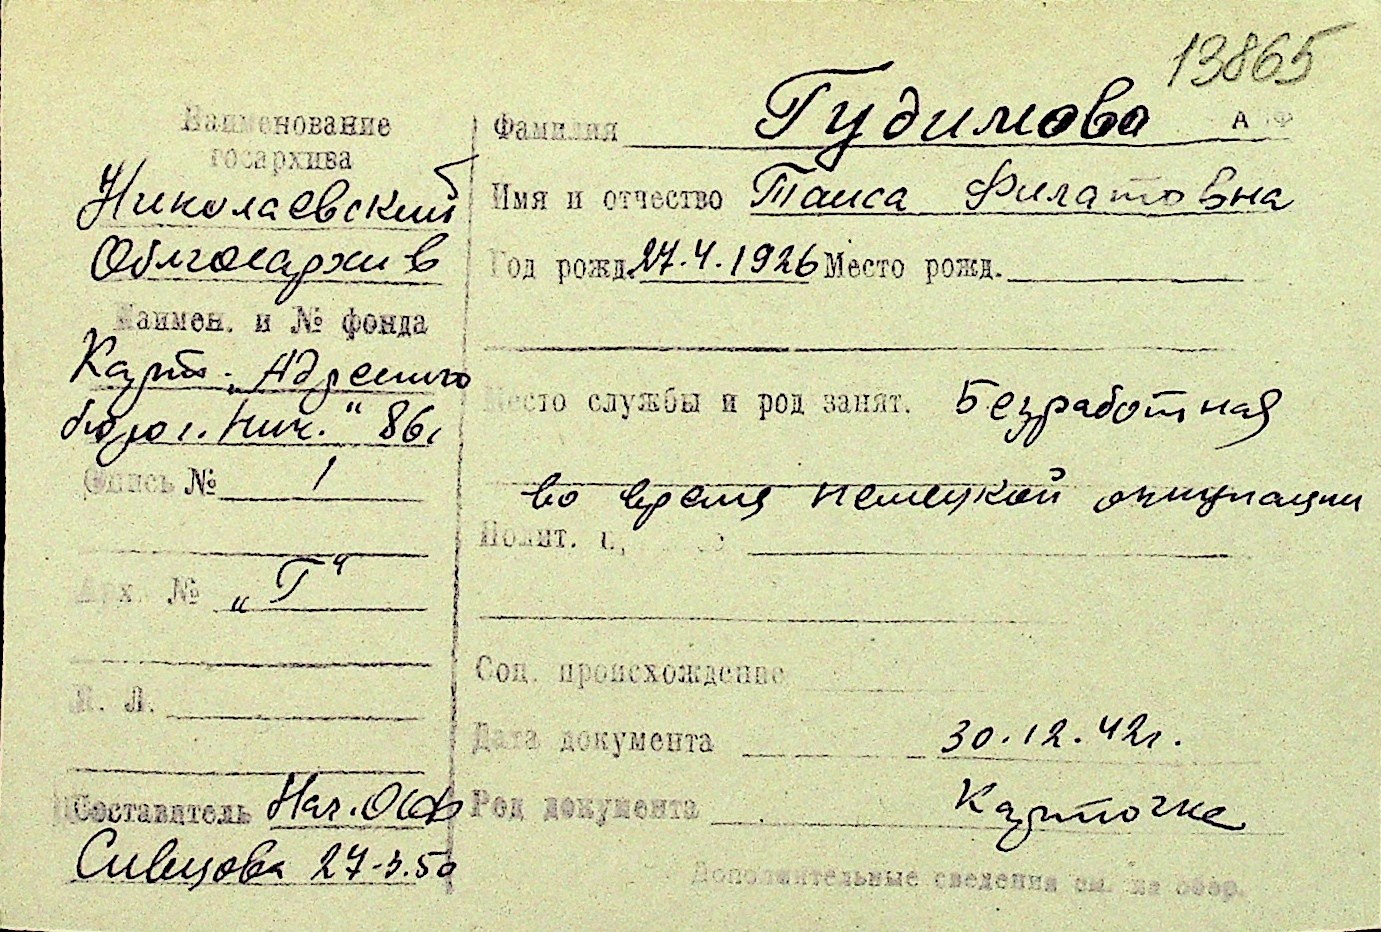 13865
Наименование
госархива
Николаевский
Облгосархив
Наимен. и № фонда
Карт. „Адресного
бюро г. Ник." 86с
Опись № 1
Арх. № „Г"
П. Л.
Составитель Нач. ОИФ
Сивцова 27-3.50
Фамилия Гудимова А Ф
Имя и отчество Таиса Филатовна
Год рожд. 27.4.1926 Место рожд.
Место службы и род занят. Безработная
во время немецкой оккупации
Полит.
Соц. происхождение
Дата документа 30.12.42г.
Род документа Карточка
Дополнительные сведения см. на обор.